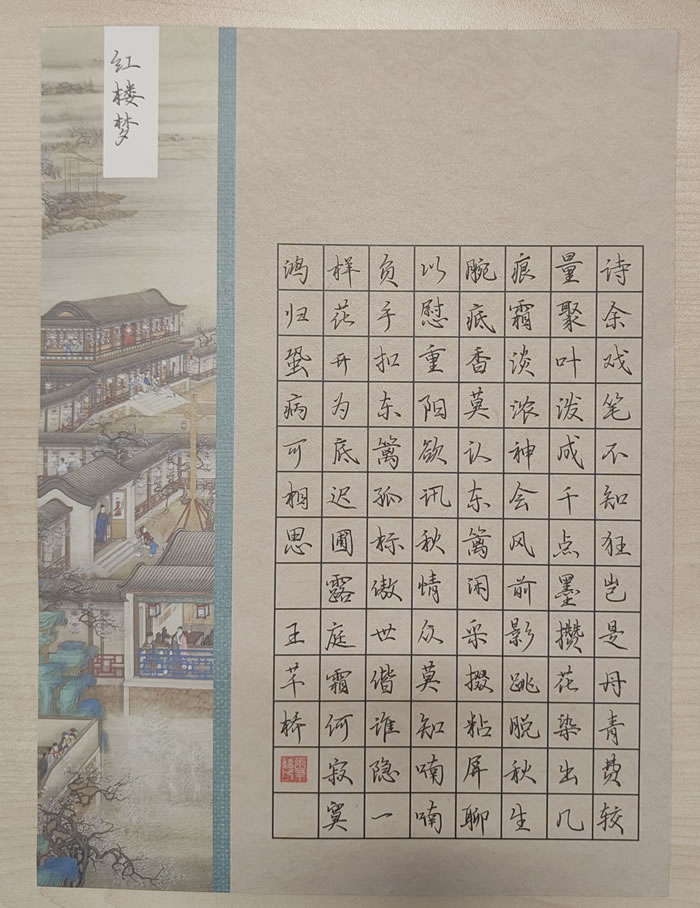 红楼梦
诗余戏笔不知狂岂是丹青费较
量聚叶泼成千点墨攒花染出几
痕霜淡浓神会风前影跳脱秋生
腕底香莫认东篱闲采掇粘屏聊
以慰重阳欲讯秋情众莫知喃喃
负手扣东篱孤标傲世偕谁隐一
样花开为底迟圃露庭霜何寂寞
鸿归蛩病可相思 王芊桥